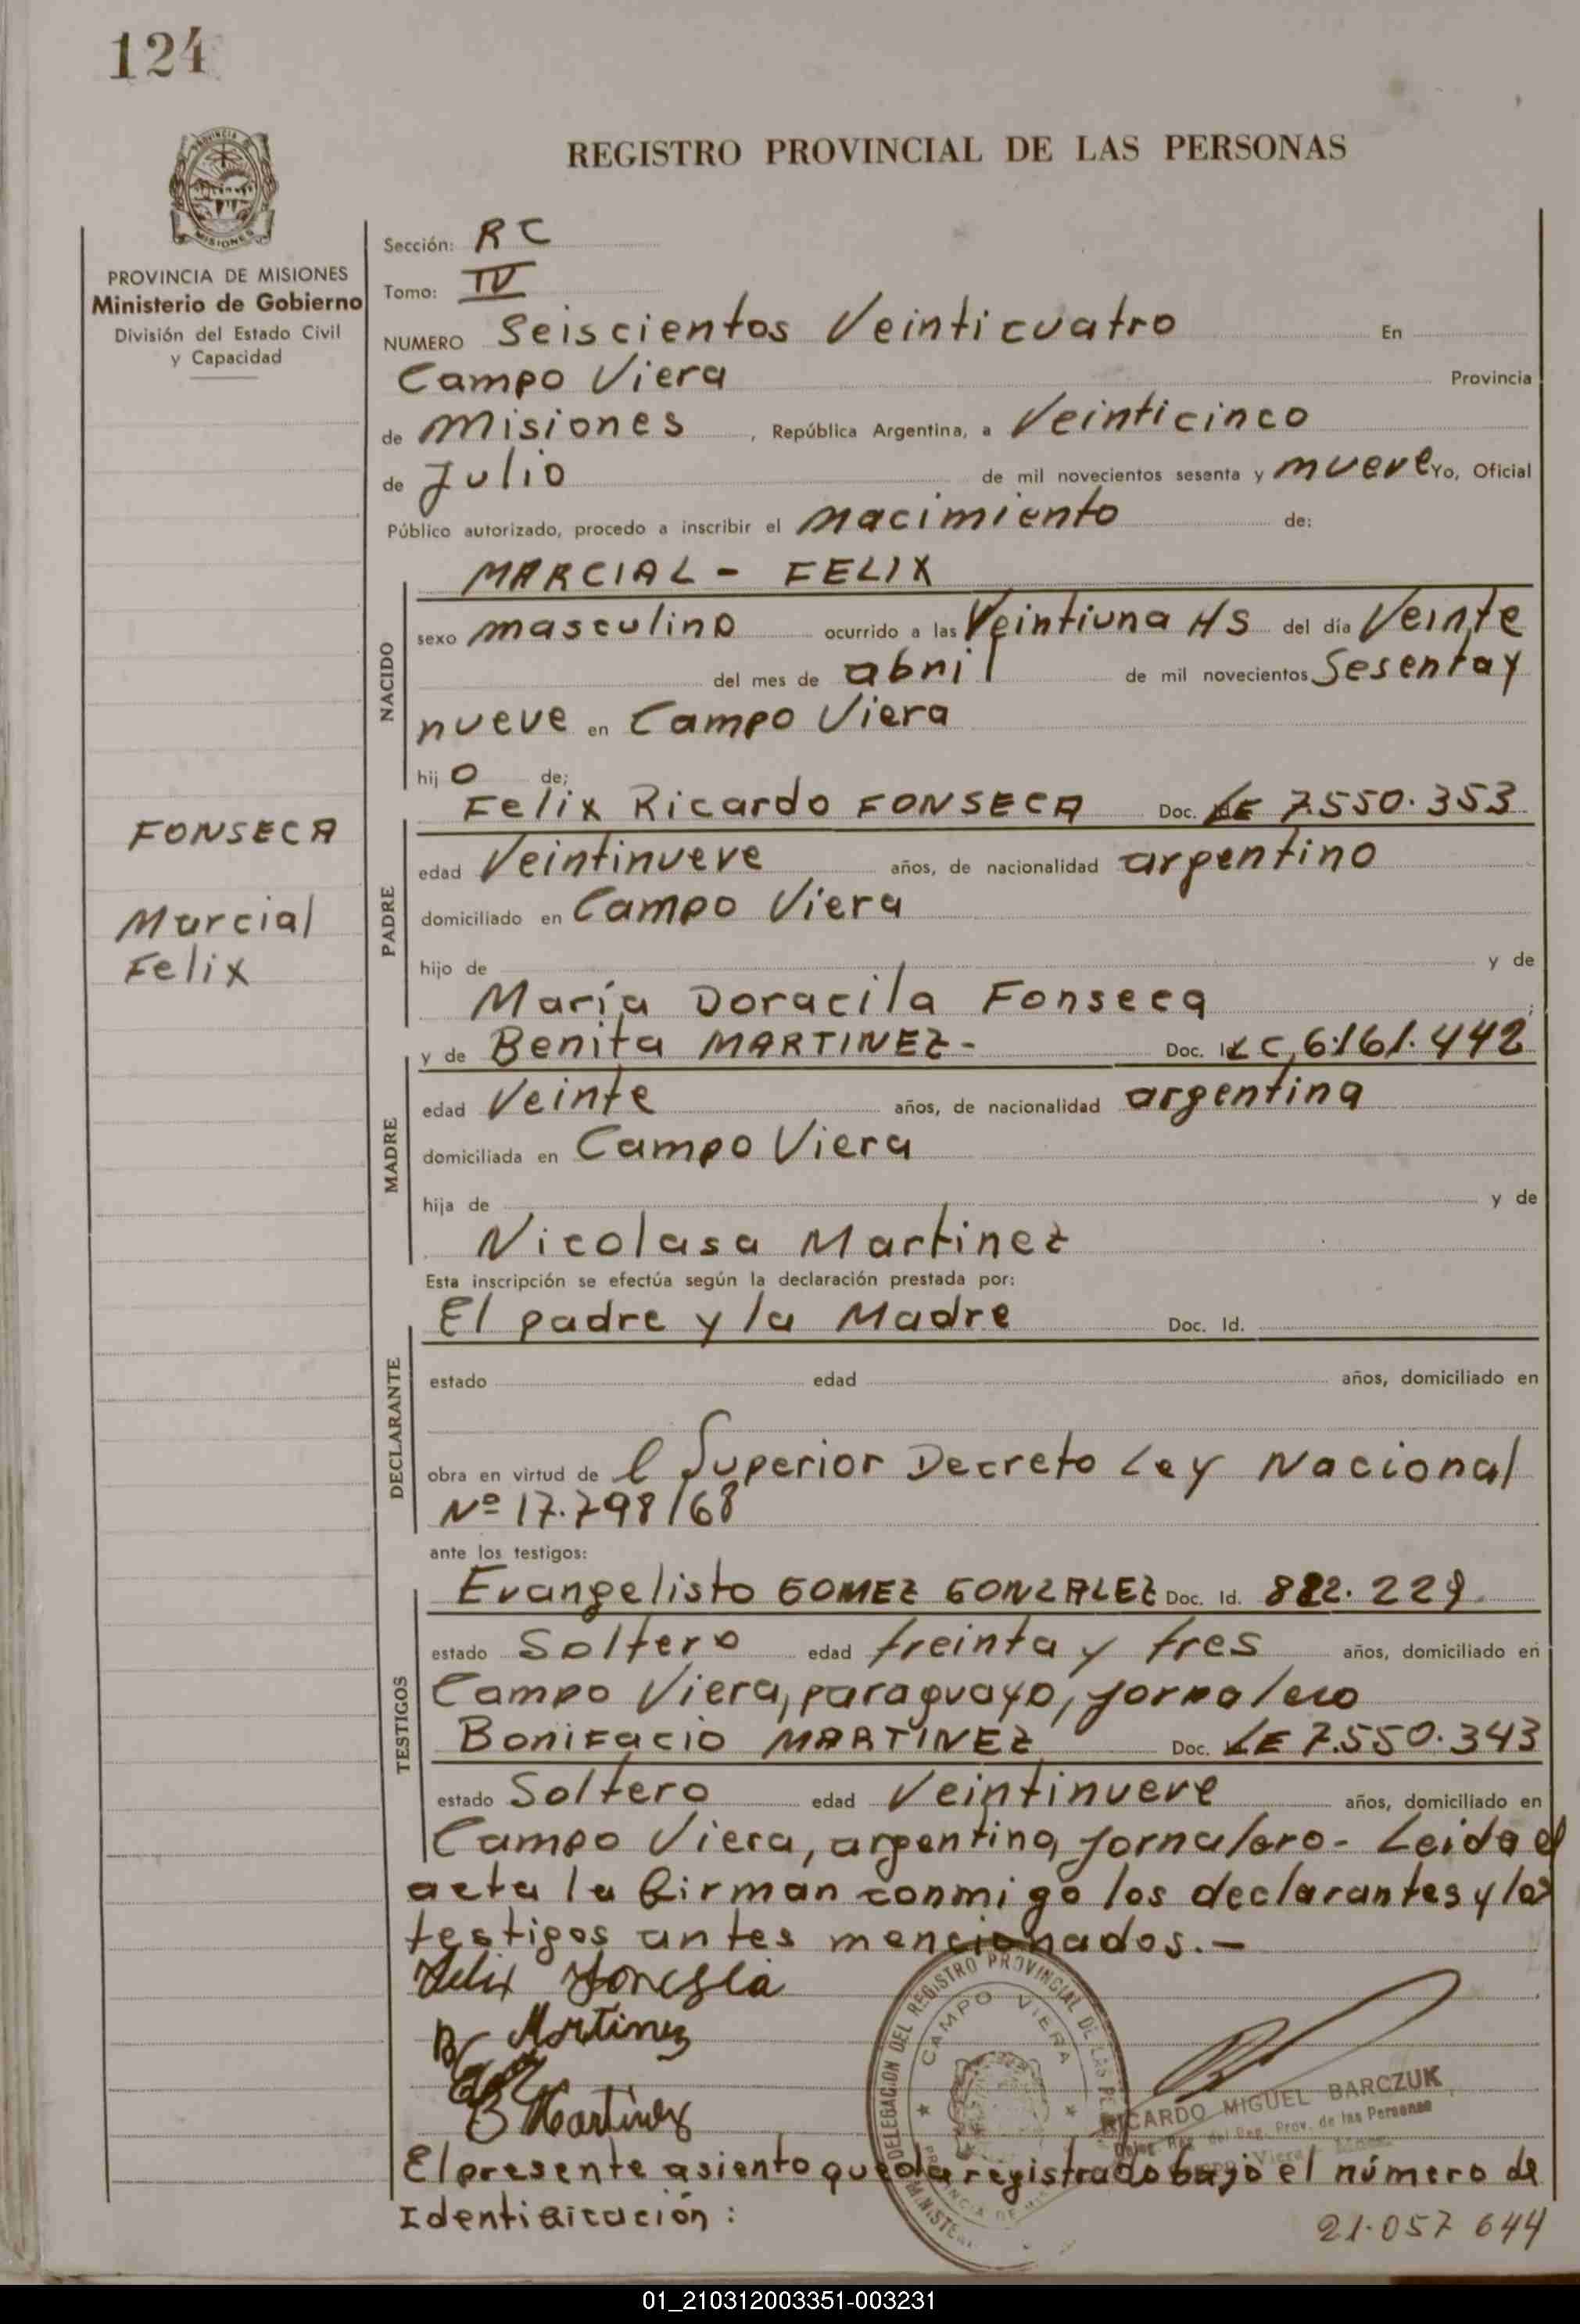 124
REGISTRO PROVINCIAL DE LAS PERSONAS
PROVINCIA DE MISIONES
Ministerio de Gobierno
División del Estado Civil
y Capacidad
Sección: RC
Tomo: IV
NUMERO Seiscientos Veinticuatro En
Campo Viera Provincia
de Misiones, República Argentina, a Veinticinco
de Julio de mil novecientos sesenta y nueve Yo, Oficial
Público autorizado, procedo a inscribir el nacimiento de:
MARCIAL - FELIX
NACIDO
sexo masculino ocurrido a las Veintiuna HS del día Veinte
del mes de abril de mil novecientos Sesenta y
nueve en Campo Viera
hijo de;
FONSECA
Marcial
Felix
Felix Ricardo FONSECA Doc. LE 7.550.353
PADRE
edad Veintinueve años, de nacionalidad argentino
domiciliado en Campo Viera
hijo de y de
María Doracila Fonseca
y de Benita MARTINEZ- Doc. LC 6.161.442
MADRE
edad Veinte años, de nacionalidad argentina
domiciliada en Campo Viera
hija de y de
Nicolasa Martinez
Esta inscripción se efectúa según la declaración prestada por:
El padre y la Madre Doc. Id.
DECLARANTE
estado edad años, domiciliado en
obra en virtud de l Superior Decreto Ley Nacional
Nº 17.798/68
ante los testigos:
Evangelisto GOMEZ GONZALEZ Doc. Id. 882.229
TESTIGOS
estado Soltero edad treinta y tres años, domiciliado en
Campo Viera, paraguayo, jornalero
Bonifacio MARTINEZ Doc. LE 7.550.343
estado Soltero edad Veintinueve años, domiciliado en
Campo Viera, argentino, jornalero- Leida el
acta la firman conmigo los declarantes y los
testigos antes mencionados.-
Felix Fonseca
B Martinez
B Martinez
DELEGACION DEL REGISTRO PROVINCIAL DE LAS
CAMPO VIERA
RICARDO MIGUEL BARCZUK
Reg. Prov. de las Personas
El presente asiento queda registrado bajo el número de
Identificación: 21.057 644
01_210312003351-003231